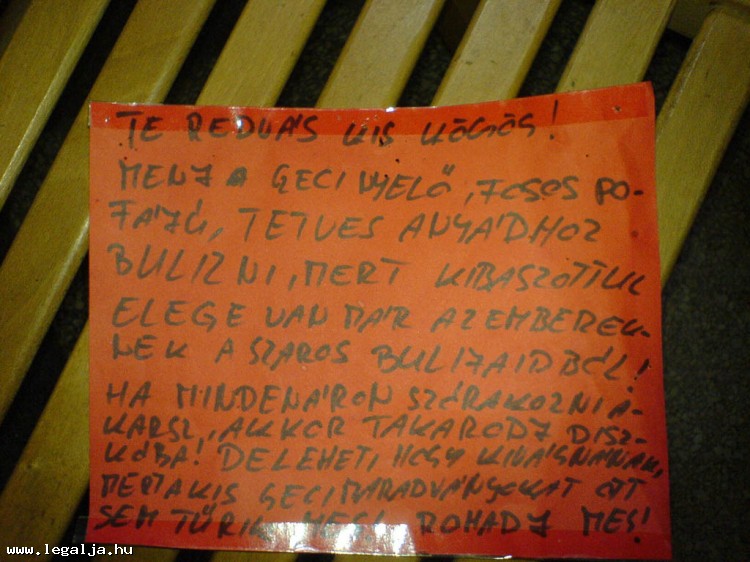 TE REDVÁS KIS KÖCSÖG!
MENJ A GECINYELŐ, FOSOS PO-
FÁJÚ, TETVES ANYÁDHOZ
BULIZNI, MERT KIBASZOTTUL
ELEGE VAN MÁR AZ EMBEREK-
NEK A SZAROS BULIJAIDBÓL!
HA MINDENÁRON SZÓRAKOZNI A-
KARSZ, AKKOR TAKARODJ DISZ-
KÓBA! DE LEHET, HOGY KIVÁGNÁNAK,
MERT A KIS GECIMARADVÁNYOKAT OTT
SEM TŰRIK MEG! ROHADJ MEG!
www.legalja.hu